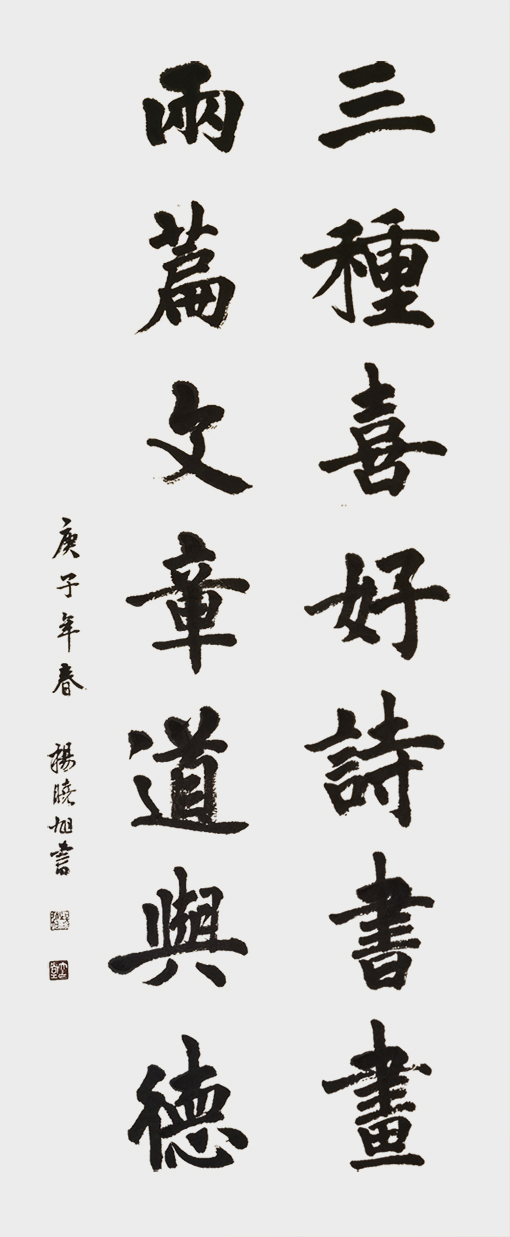 三種喜好詩書畫
兩篇文章道與德
庚子年春 楊曉旭書